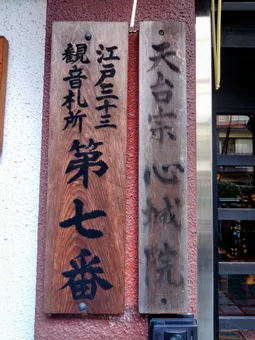 天台宗心城院
江戸三十三
観音札所
第七番